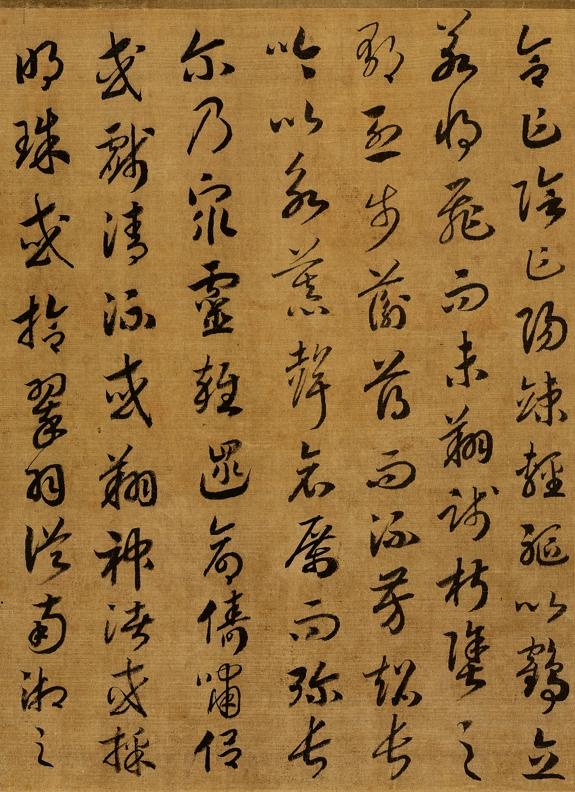 合乍陰乍陽竦輕軀以鶴立
若將飛而未翔踐椒塗之
郁烈步蘅薄而流芳超長
吟以永慕聲哀厲而彌長
尔乃衆靈雜遝命儔嘯侶
或戲清流或翔神渚或採
明珠或拾翠羽從南湘之